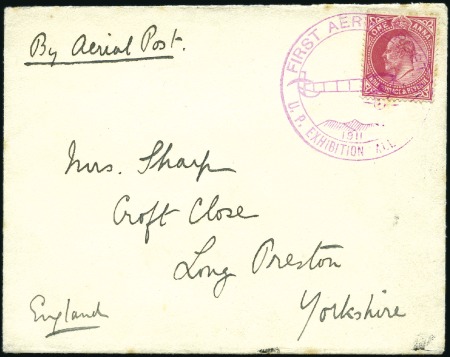 By Aerial Post.
FIRST AER
ONE ANNA
INDIA POSTAGE & REVENUE
1911
U.P. EXHIBITION ALL
Mrs. Sharp
Croft Close
Long Preston
Yorkshire
England